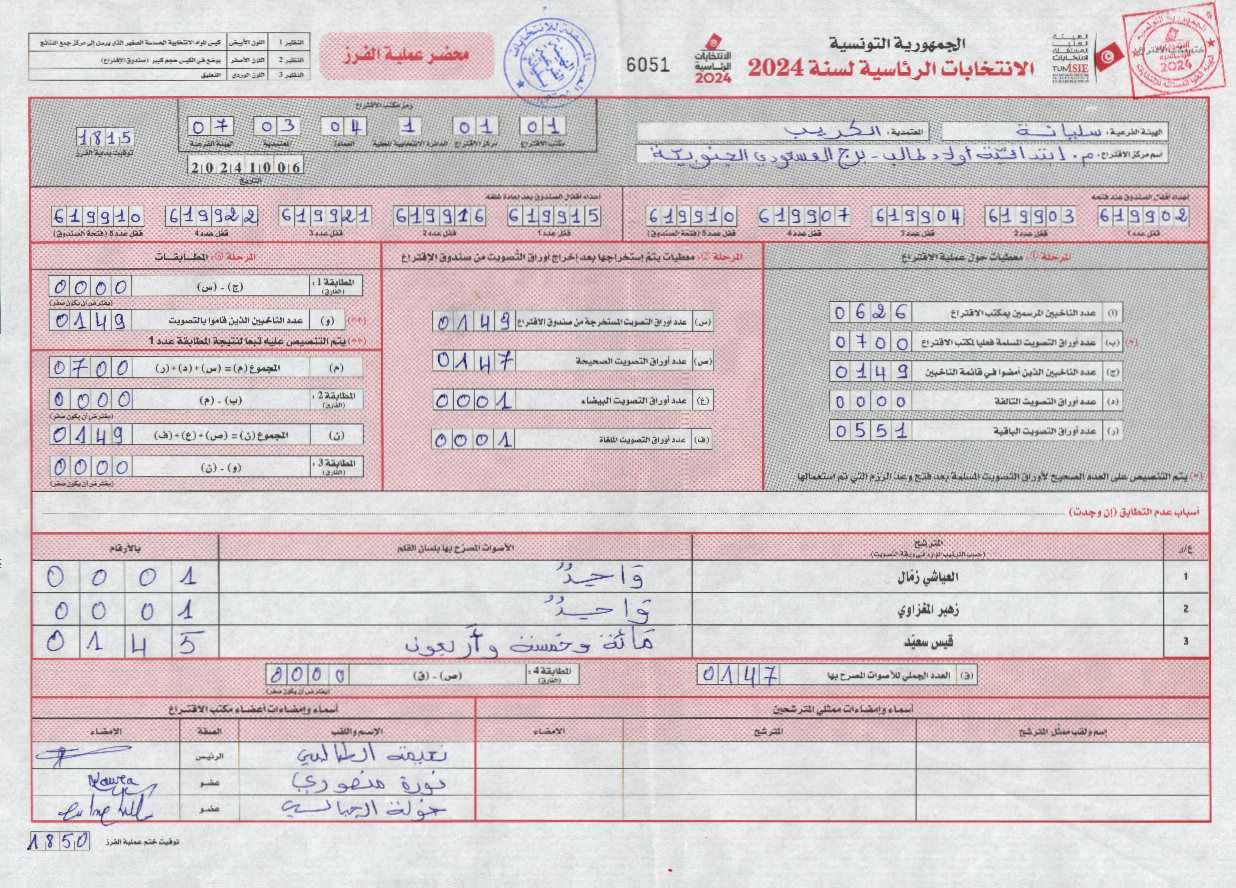 الجمهورية التونسية
الانتخابات الرئاسية لسنة 2024
الهيئة العليا المستقلة للانتخابات
TUNISIE
الانتخابات الرئاسية 2024
6051
محضر عملية الفرز
النظير 1 اللون الأبيض
النظير 2 اللون الأصفر يوضع في الكيس حجم كبير (صندوق الاقتراع)
النظير 3 اللون الوردي التعليق
الهيئة الفرعية: سليانة المعتمدية: الكريب
اسم مركز الاقتراع: م. ابتدائية أولاد طالب - برج المسعودي الجنوبية
رمز مكتب الاقتراع
01 01 1 04 03 07
مكتب الاقتراع مركز الاقتراع الدائرة الانتخابية المحلية العمادة المعتمدية الهيئة الفرعية
20241006
التاريخ
1815
توقيت بداية الفرز
أعداد أقفال الصندوق عند فتحه
619902 619903 619904 619907 619910
قفل عدد 1 قفل عدد 2 قفل عدد 3 قفل عدد 4 قفل عدد 5 (فتحة الصندوق)
أعداد أقفال الصندوق بعد إعادة غلقه
619915 619916 619921 619922 619910
قفل عدد 1 قفل عدد 2 قفل عدد 3 قفل عدد 4 قفل عدد 5 (فتحة الصندوق)
المرحلة ①: معطيات حول عملية الاقتراع
(ا) عدد الناخبين المرسمين بمكتب الاقتراع 0626
(*) (ب) عدد أوراق التصويت المسلمة فعليا لمكتب الاقتراع 0700
(ج) عدد الناخبين الذين أمضوا في قائمة الناخبين 0149
(د) عدد أوراق التصويت التالفة 0000
(ر) عدد أوراق التصويت الباقية 0551
(*) يتم التنصيص على العدد الصحيح لأوراق التصويت المسلمة بعد فتح وعد الرزم التي تم استعمالها
المرحلة ②: معطيات يتم إستخراجها بعد إخراج أوراق التصويت من صندوق الإقتراع
(س) عدد أوراق التصويت المستخرجة من صندوق الاقتراع 0149
(ص) عدد أوراق التصويت الصحيحة 0147
(ع) عدد أوراق التصويت البيضاء 0001
(ف) عدد أوراق التصويت الملغاة 0001
المرحلة ③: المطابقات
المطابقة 1: (الفارق) (ج) - (س) 0000
(يفترض أن يكون صفر)
(**) (و) عدد الناخبين الذين قاموا بالتصويت 0149
(**) يتم التنصيص عليه تبعا لنتيجة المطابقة عدد 1
(م) المجموع (م) = (س) + (د) + (ر) 0700
المطابقة 2: (الفارق) (ب) - (م) 0000
(يفترض أن يكون صفر)
(ن) المجموع (ن) = (ص) + (ع) + (ف) 0149
المطابقة 3: (الفارق) (و) - (ن) 0000
(يفترض أن يكون صفر)
أسباب عدم التطابق (إن وجدت)
ع/ر المترشح الأصوات المصرح بها بلسان القلم بالأرقام
(حسب الترتيب الوارد في ورقة التصويت)
1 العياشي زمّال وَاحِدٌ 0001
2 زهير المغزاوي وَاحِدٌ 0001
3 قيس سعيّد مائة وخمسة وأربعون 0145
(ق) العدد الجملي للأصوات المصرح بها 0147
المطابقة 4: (الفارق) (ص) - (ق) 0000
(يفترض أن يكون صفر)
أسماء وإمضاءات ممثلي المترشحين
إسم ولقب ممثل المترشح المترشح الامضاء
أسماء وإمضاءات أعضاء مكتب الاقتراع
الإسم واللقب الصفة الامضاء
نعيمة الطالبي الرئيس
نورة منصوري عضو
خولة عضو
توقيت ختم عملية الفرز 1850